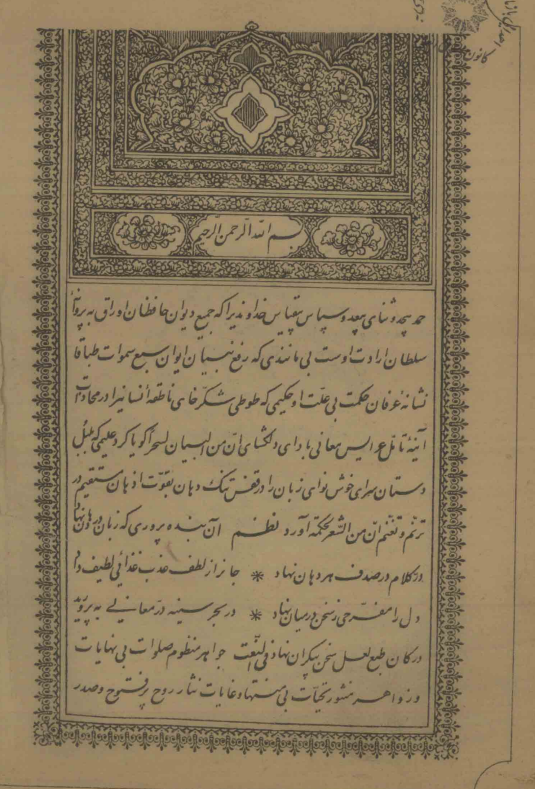 بسم الله الرحمن الرحیم
حمد بیحد و ثنای بیعد و سپاس بیقیاس خداوندیرا که جمع دیوان حافظان اوراق به پروانهٔ
سلطان ارادت اوست بی مانندی که رفع بنیان ایوان سبع سموات طباقا
نشانهٔ عرفان حکمت بی علت او حکیمی که طوطی شکرخای ناطقهٔ انسانیرا در محاذات
آینهٔ تأمل عرایس معانی بادای دلکشای ان من البیان لسحرا گویا کرد علیمی که بلبل
دستان سرای خوش نوای زبان را در قفس تنگ دهان بقوت اذهان مستقیم در
ترنم و تنغم ان من الشعر لحکمة آورد نظم آن بنده پروری که زبان در دهان نهاد
در کلام در صدف هر دهان نهاد * جانرا ز لطف عذب غذائی لطیف داد
دل را مفرحی ز سخن در میان نهاد * در بحر سینه در معانی به پرورید
در کان طبع لعل سخن بیکران نهاد فی النعت جواهر منظوم صلوات بی نهایات
و زواهر منثور تحیات بی منتها و غایات نثار روح پرفتوح و صدر